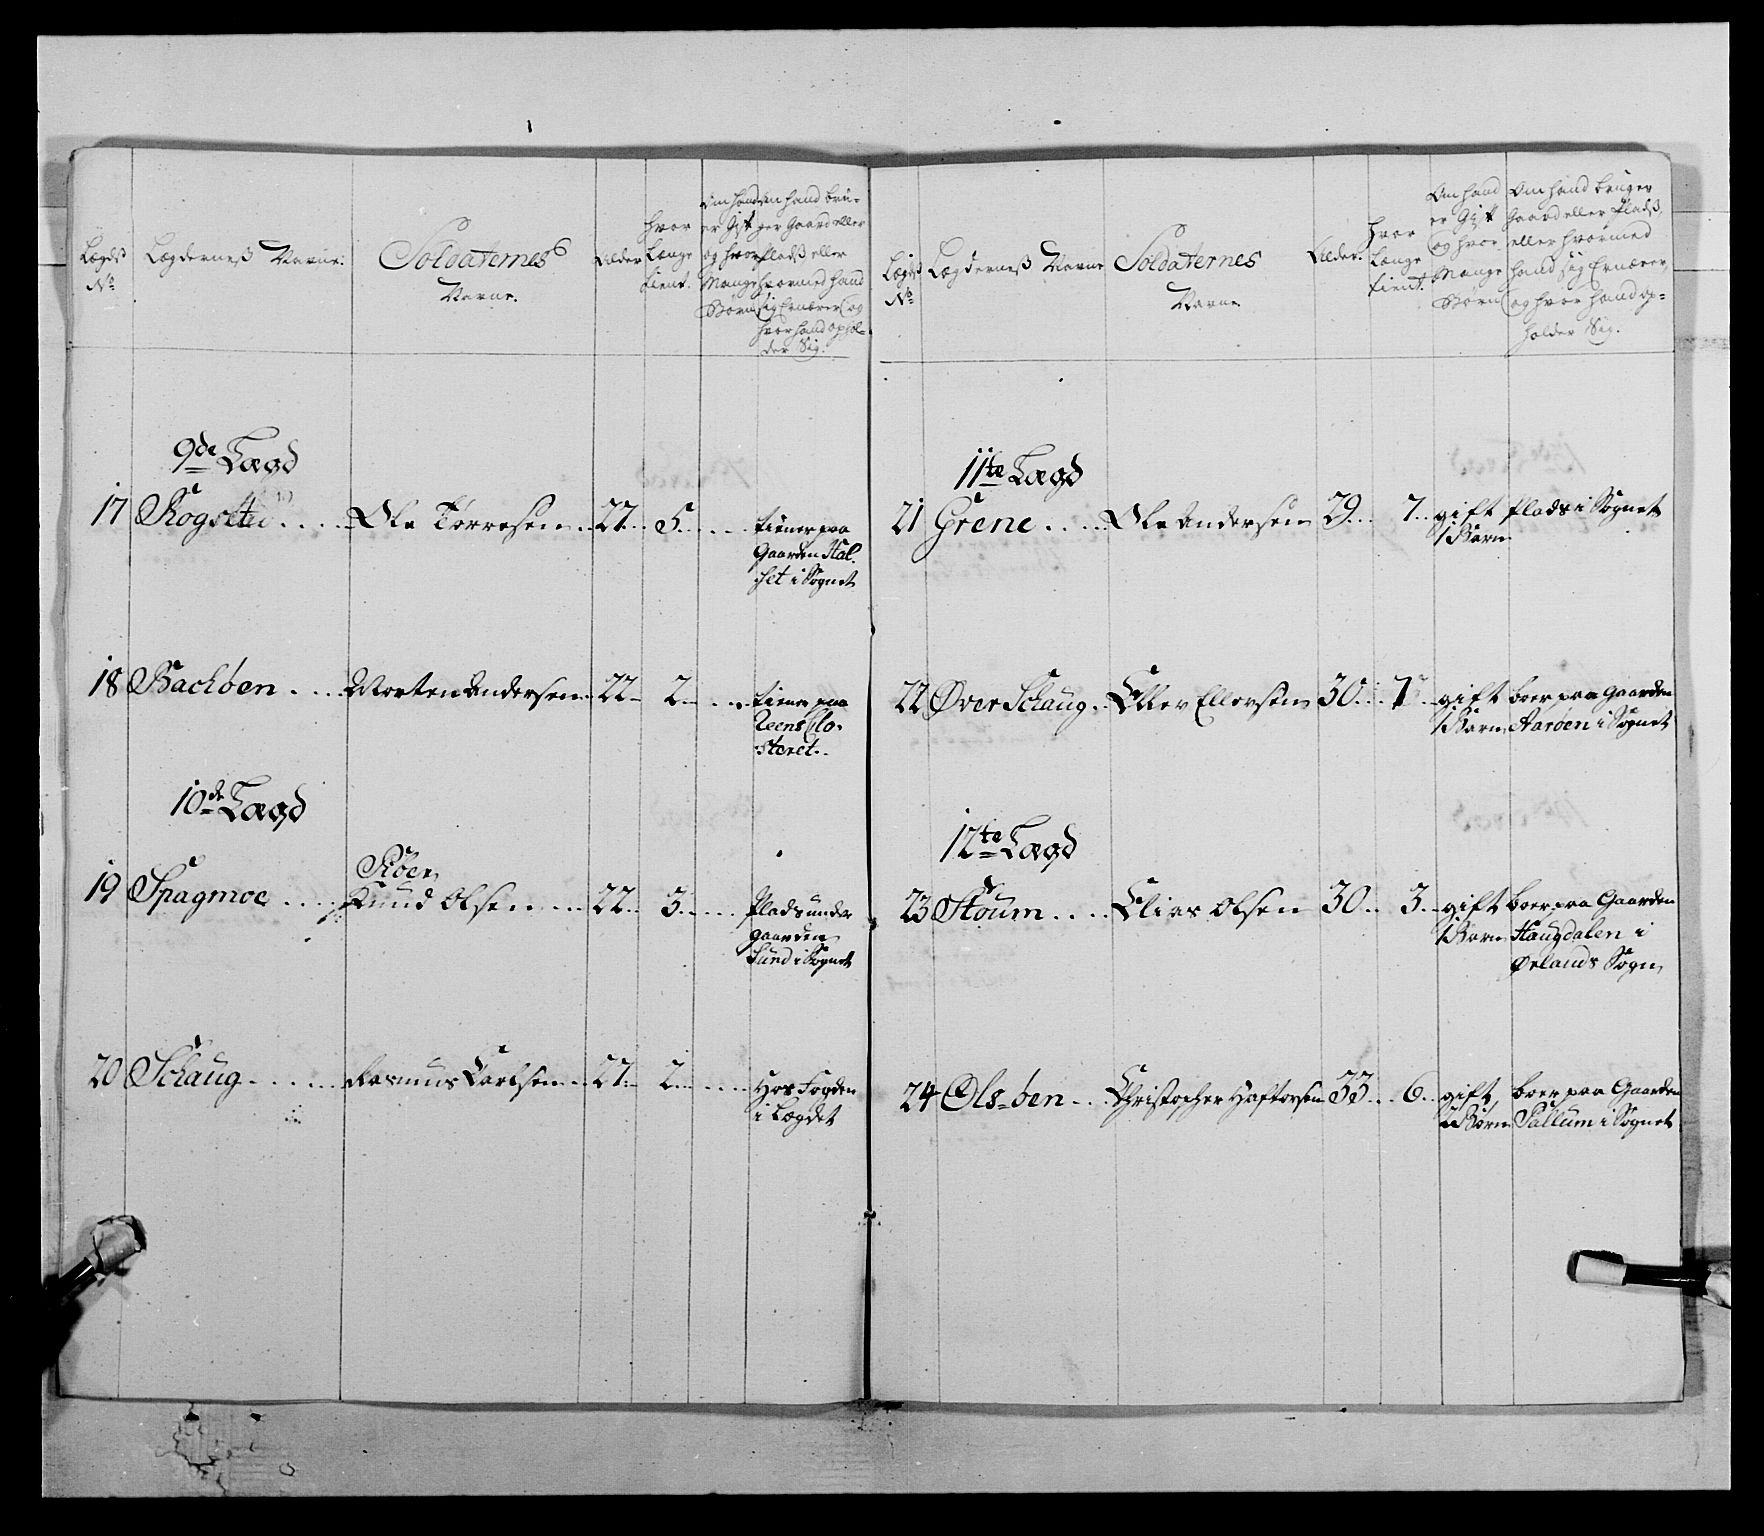 Lægds No
Lægderneß Navne.
Soldaternes Navne.
Alder
hvor Længe tient.
Om hand er Gift og hvor Mange Børn
Om hand bru-
ger Gaard eller
Pladß eller
hvormed hand
sig Ernærer og
hvor hand ophol-
der Sig.
9de Lægd
17 Ole Torresen 22 5 tiener paa
Gaarden Hal-
set i Sognet
18 Bachøen Morten Andersen 22 2 tiener paa
Reens Clo-
steret
10de Lægd
19 Spagmoe Knud Olsen 22 3 Plads under
gaarden
Sund i Sognet
20 Schaug Rasmus Carlsen 27 2 Hos Fogden
i Lægdet
Lægds No
Lægderneß Navne
Soldaternes Navne
Alder.
hvor Længe tient.
Om hand er Gift og hvor Mange Børn
Om hand bruger
Gaard eller Pladß,
eller hvormed
hand sig Ernærer,
og hvor hand op-
holder Sig.
11te Lægd
21 Grene Ole Andersen 29 7 gift Plads i Sognet
1 Barn
22 Øver Schaug Eller Ellersen 30 7 gift boer paa Gaarden
1 Barn Aarøen i Sognet
12te Lægd
23 Houm Elias Olsen 30 3 gift boer paa Gaarden
1 Barn Haugdalen i
Ørlands Sogn
24 Ols-øen Christopher Haftorsen 33 6 gift, boer paa Gaarden
2 Børn i Sognet